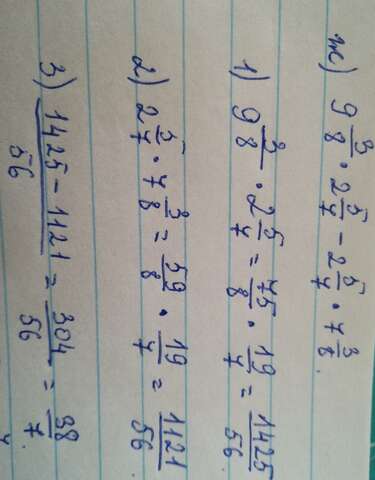 ж) 9 3/8 · 2 5/7 - 2 5/7 · 7 3/8
1) 9 3/8 · 2 5/7 = 75/8 · 19/7 = 1425/56
2) 2 5/7 · 7 3/8 = 59/8 · 19/7 = 1121/56
3) 1425 - 1121/56 = 304/56 = 38/7